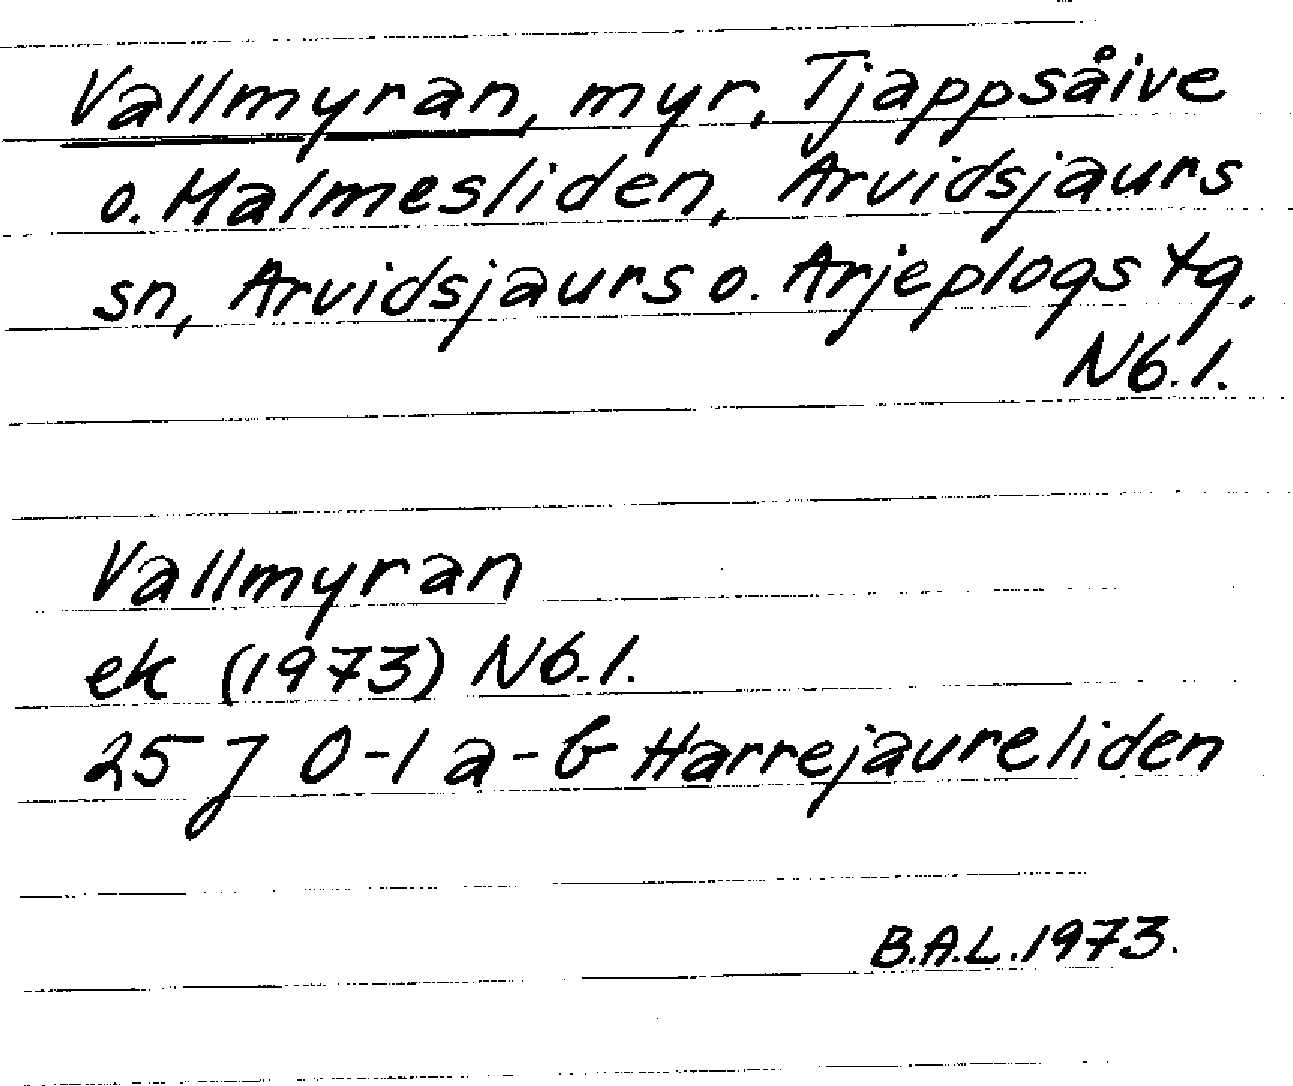 Vallmyran, myr, Tjappsåive
o. Malmesliden, Arvidsjaurs
sn, Arvidsjaurs o. Arjeplogs tg,
Nb.l.
Vallmyran
ek (1973) Nb.l.
25 J 0-1 a-b Harrejaureliden
B.A.L.1973.